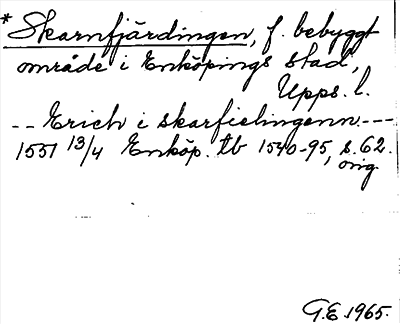 *Skarnfjärdingen, f. bebyggt
område i Enköpings stad,
Upps. l.
-- Erich i skarfielingenn ---
1551 13/4 Enköp. tb 1540-95, s. 62.
orig.
G.E. 1965.